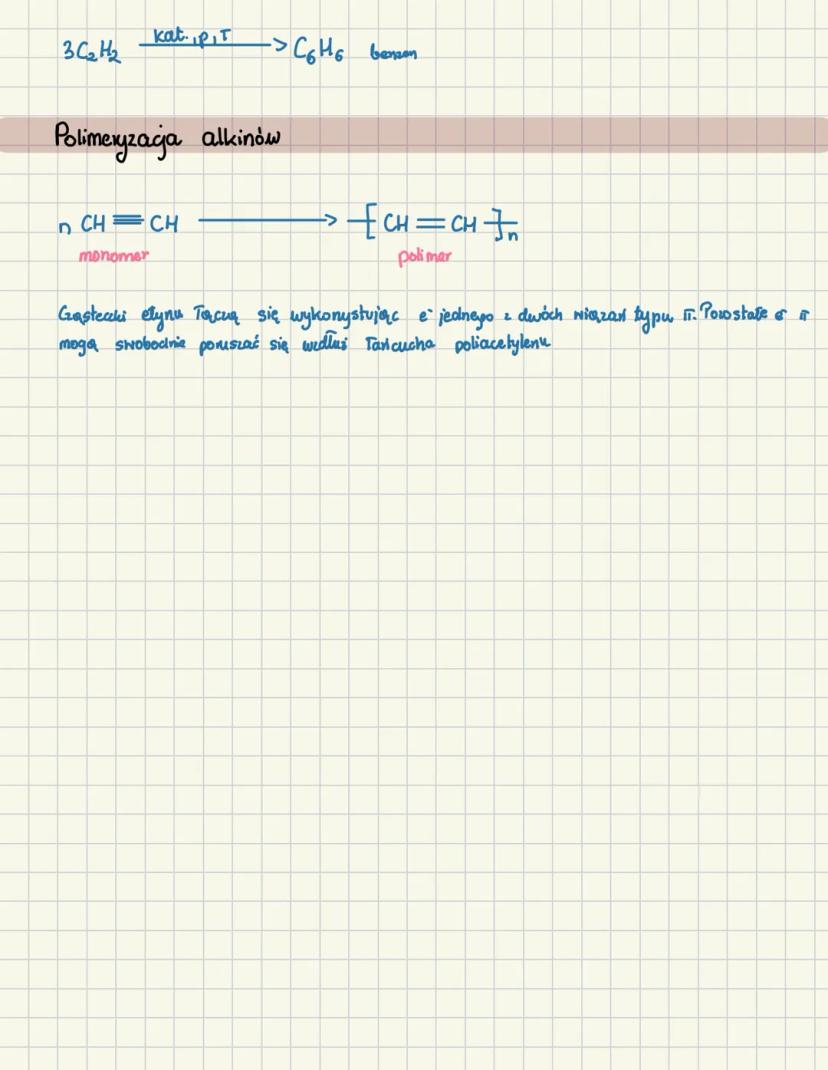 3C₂H₂ kat., p, T → C₆H₆ benzen
Polimeryzacja alkinów
n CH≡CH → -[CH=CH]-n
monomer polimer
Cząsteczki etynu łączą się wykorzystując e⁻ jednego z dwóch wiązań typu π. Pozostałe e⁻ π
mogą swobodnie poruszać się wzdłuż łańcucha poliacetylenu